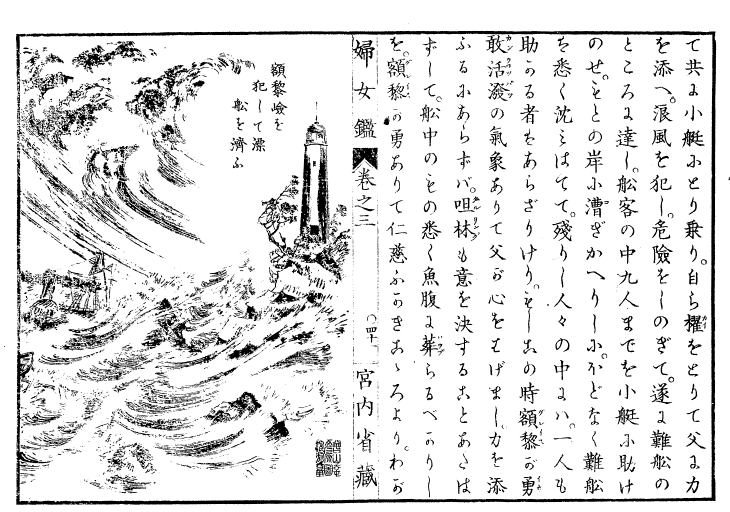 て共に小艇にとり乗り。自ら櫂をとりて父に力
を添へ。浪風を犯し。危險をしのぎて。遂に難船の
ところに達し。船客の中九人までを小艇に助け
のせ。もとの岸に漕ぎかへりしに。ほどなく難船
も悉く沈みはてて。殘りし人々の中には。一人も
助かる者もあらざりけり。もしこの時額黎が勇
敢活潑の氣象ありて父が心をはげまし。力を添
ふるにあらずば。咀林も意を決することあたは
ずして。船中のもの悉く魚腹に葬らるべかりし
を。額黎が勇ありて仁慈ふかきこゝろより。わが
婦女鑑 卷之三 〇四十 宮内省藏
額黎嶮を
犯して漂
船を濟ふ